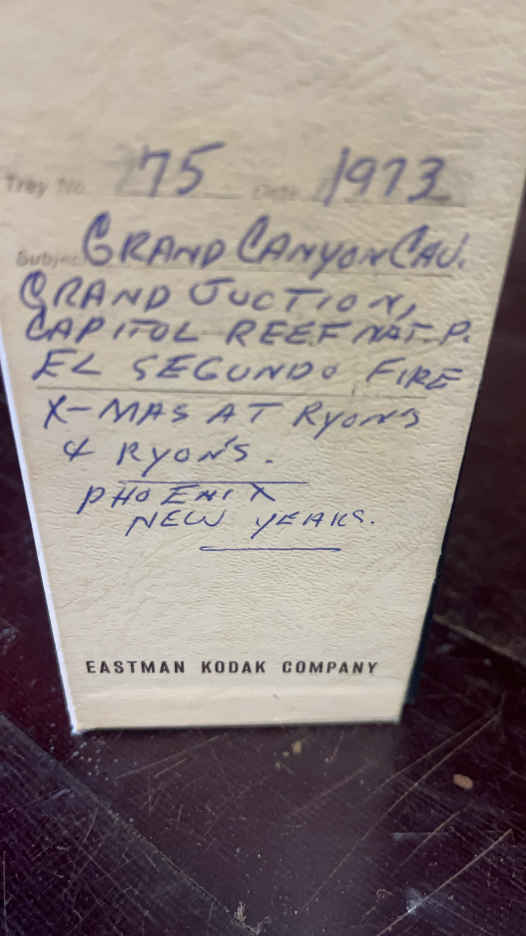 Tray No. 75 Date 1973
Subject GRAND CANYON CAV.
GRAND JUCTION,
CAPITOL REEF NAT. P.
EL SEGUNDO FIRE
X-MAS AT RYONS
& RYON'S.
PHOENIX
NEW YEARS.
EASTMAN KODAK COMPANY